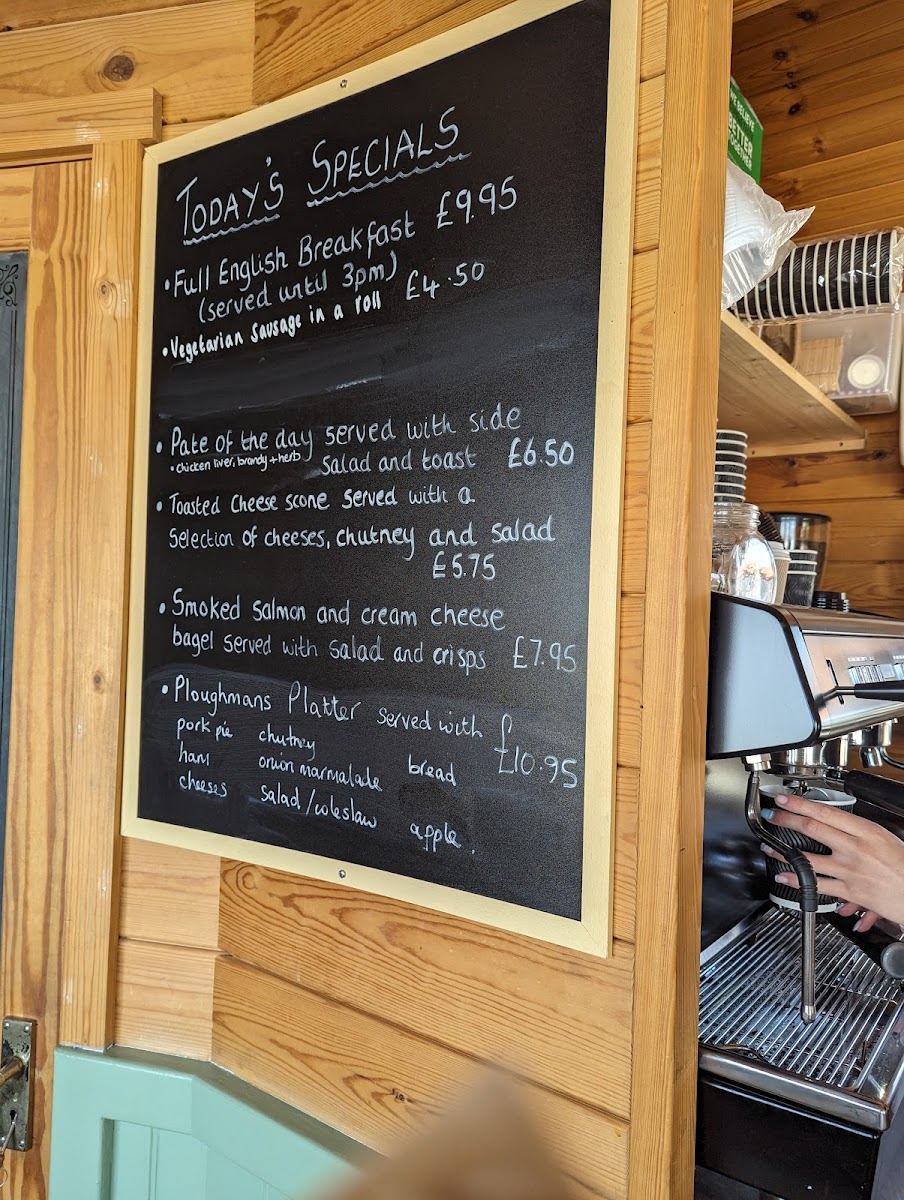 TODAY'S SPECIALS
• Full English Breakfast £9.95
(served until 3pm)
• Vegetarian sausage in a roll £4.50
• Pate of the day served with side
• chicken liver, brandy + herb Salad and toast £6.50
• Toasted Cheese scone served with a
Selection of cheeses, chutney and salad
£5.75
• Smoked salmon and cream cheese
bagel served with salad and crisps £7.95
• Ploughmans Platter served with £10.95
pork pie chutney
ham onion marmalade bread
cheeses salad/coleslaw apple.
WE BELIEVE
BETTER
TOGETHER